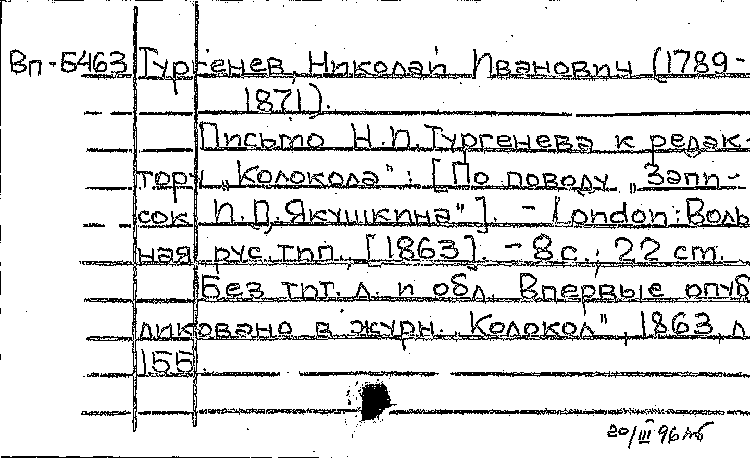 Вп-5463 Тургенев, Николай Иванович (1789-
1871).
Письмо Н.И. Тургенева к редак-
тору „Колокола": [По поводу „Запи-
сок И.Д. Якушкина"]. - London: Воль
ная рус. тип., [1863]. - 8 с.; 22 cm.
Без тит. л. и обл. Впервые опуб
ликовано в журн. „Колокол", 1863, л
155
20/III 96